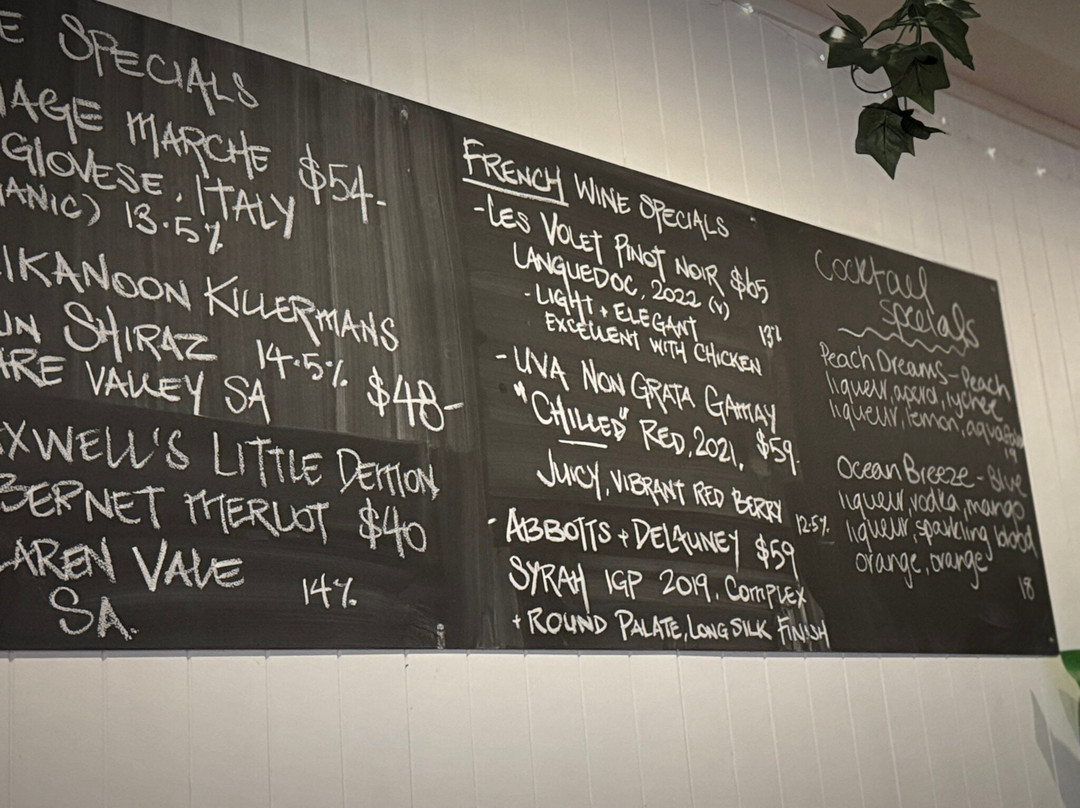 E SPECIALS
IAGE MARCHE $54-
GIOVESE, ITALY
ANIC) 13.5%
IKANOON KILLERMANS
UN SHIRAZ 14.5%
ARE VALLEY SA $48-
XWELL'S LITTLE DEMON
BERNET MERLOT $40
LAREN VALE
SA. 14%
FRENCH WINE SPECIALS
-LES VOLET PINOT NOIR $65
LANGUEDOC, 2022 (V)
-LIGHT + ELEGANT 13%
EXCELLENT WITH CHICKEN
-UVA NON GRATA GAMAY
"CHILLED" RED, 2021, $59.
JUICY, VIBRANT RED BERRY
12.5%
-ABBOTTS + DELAUNEY $59
SYRAH IGP 2019, COMPLEX
+ ROUND PALATE, LONG SILK FINISH
Cocktail
specials
Peach Dreams - Peach
liqueur, aperol, lychee
liqueur, lemon, aquafaba
19
Ocean Breeze - Blue
liqueur, vodka, mango
liqueur, sparkling blood
orange, orange
18